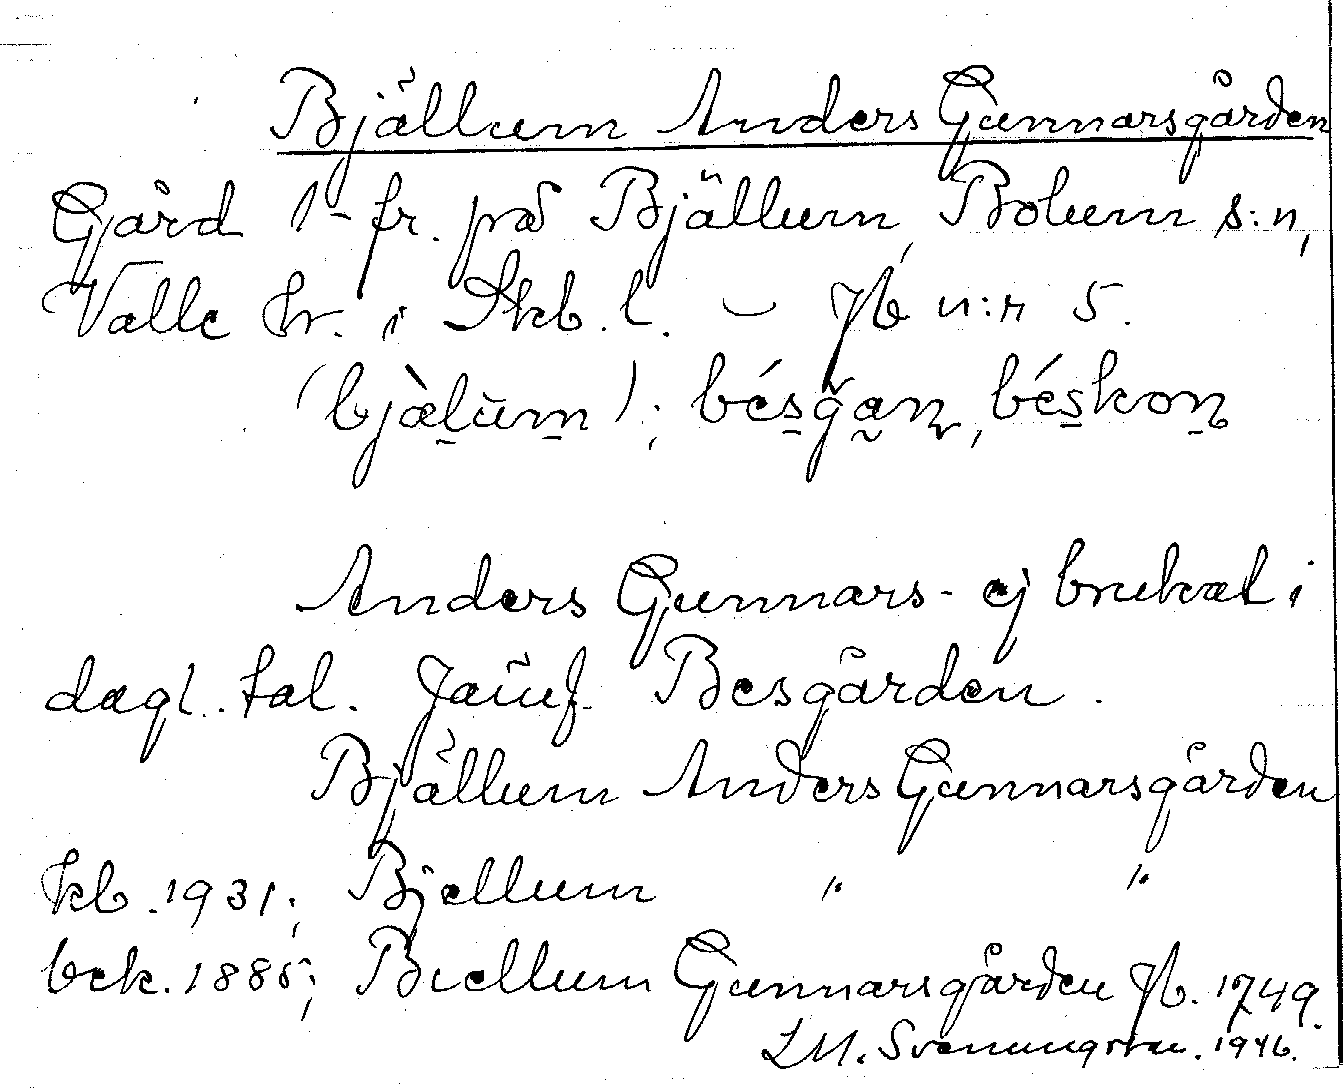 Bjällum Anders Gunnarsgården
Gård 1-fr. på Bjällum, Bolum s:n,
Valle hr. i Skb. l. – Jb n:r 5.
(bjæ̀lum); bésgan, béskon
Anders Gunnars- ej brukat i
dagl. tal. Jämf. Besgården.
Bjällum Anders Gunnarsgården
kb. 1931; Bjellum " "
bek. 1885; Biellum Gunnarsgården Jb. 1749.
1946.